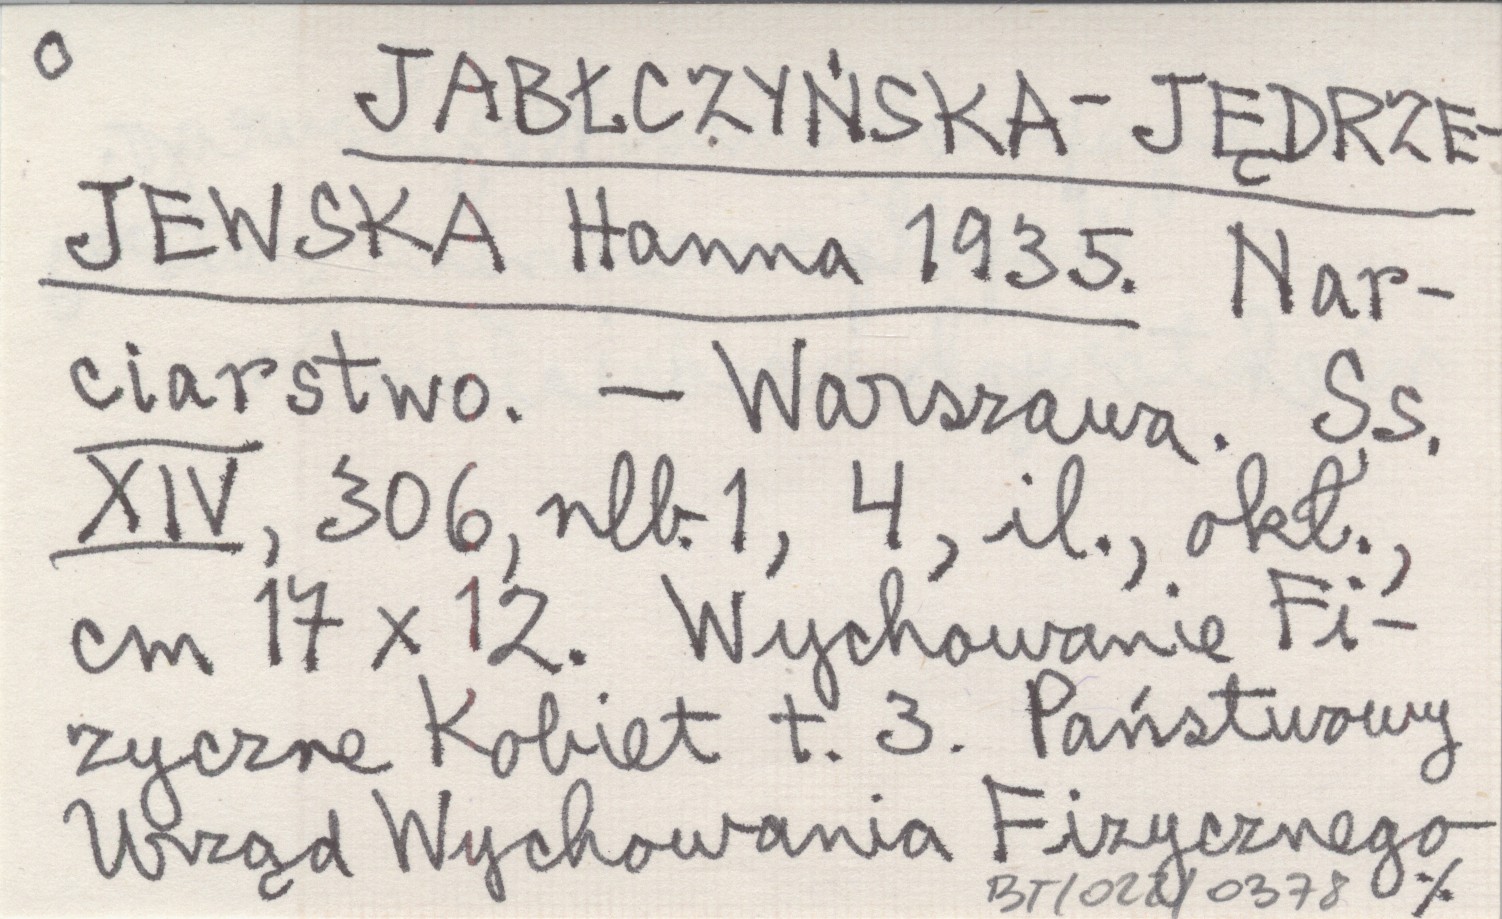 O
JABŁCZYŃSKA-JĘDRZE-
JEWSKA Hanna 1935. Nar-
ciarstwo. — Warszawa. Ss.
XIV, 306, nlb. 1, 4, il., okł.,
cm 17 x 12. Wychowanie Fi-
zyczne Kobiet t. 3. Państwowy
Urząd Wychowania Fizycznego
BT/022/0378 %